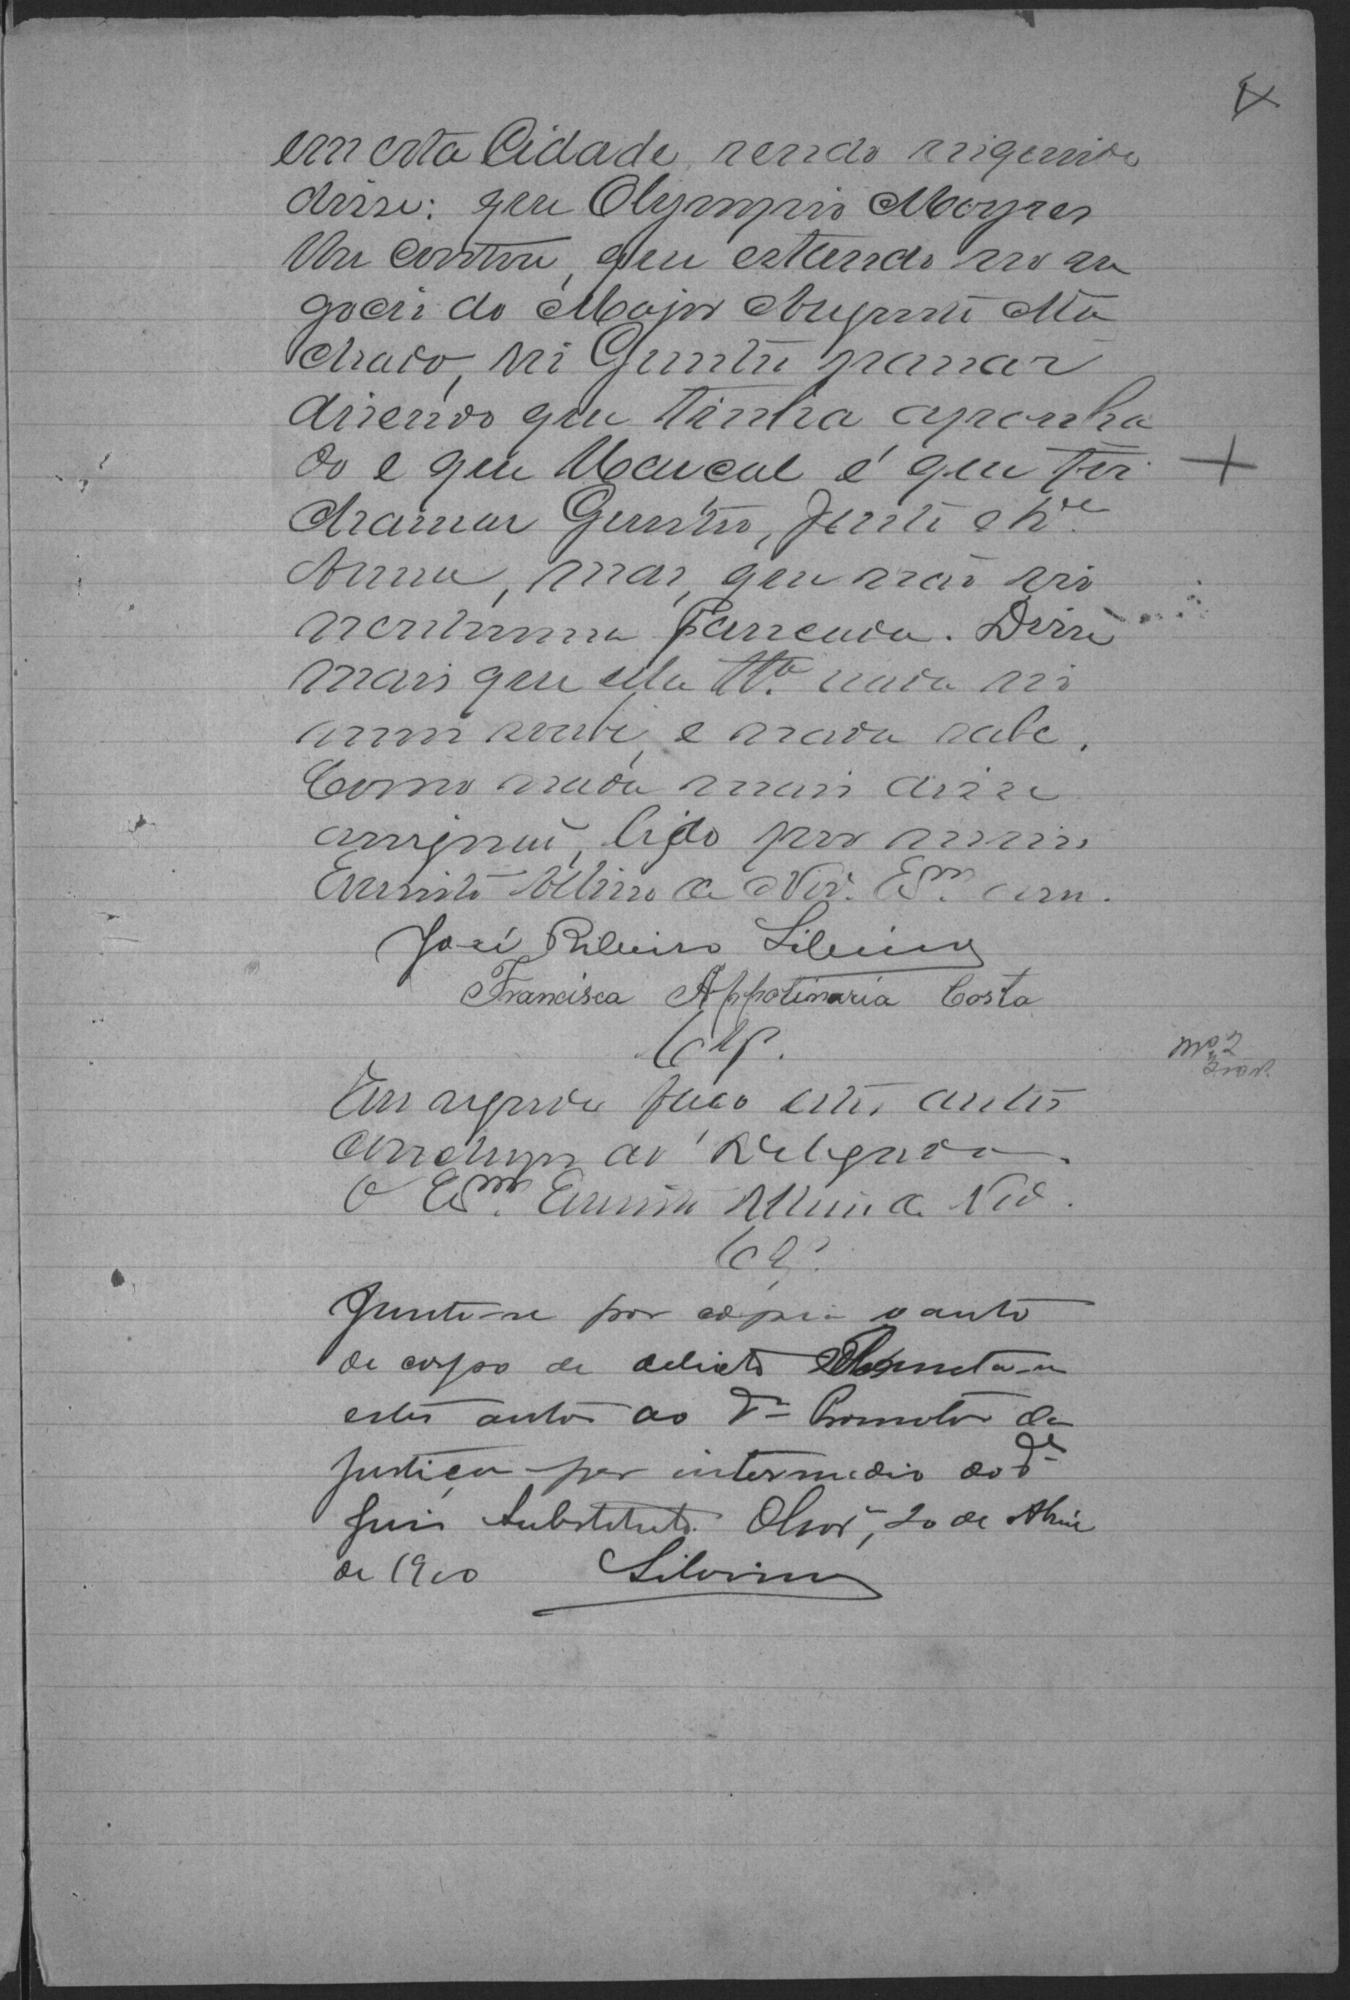 em esta Cidade, sendo inquirida
disse: que Olympio Moyses
lhe contou, que estando no ne
gocio do Major Augusto Ma
chado, vi passar
disendo que tinha apanha
do e que Marcal é que foi
chamar junto a
Anna, mas, que não vio
nenhuma pancada. Disse
mais que ella tta. nada vio
nada sabe.
Como nada mais disse
assignou, lido por mim
Evaristo Albino de Esm.
José Ribeiro Silvino
Francisca Appolinaria Costa
Clp.
Em seguida faço estes autos
conclusos ao Delegado.
O Esm. Evaristo Albino de
Cls.
Junte-se por copia o auto
de corpo de delicto Remeta-se
estes autos ao Dr Promotor da
Justiça por intermedio do Dr
Juis Substituto. 20 de Abril
de 1900 Silvino